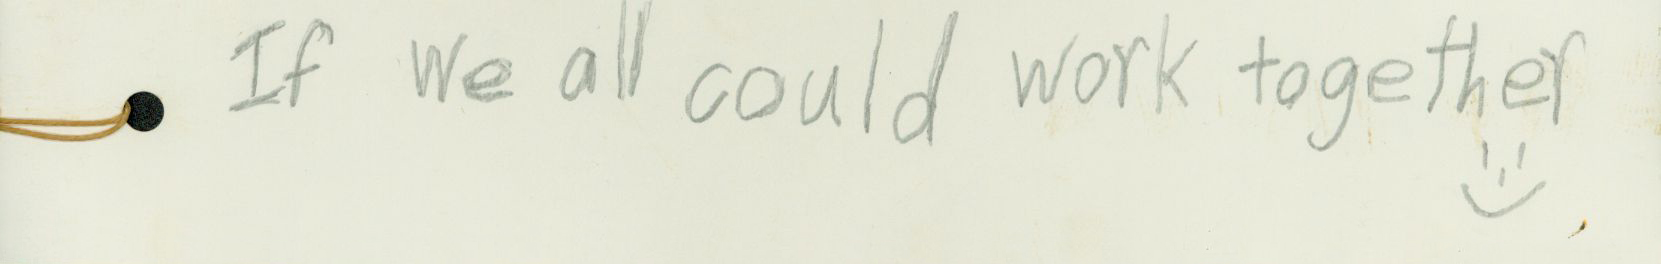 If we all could work together